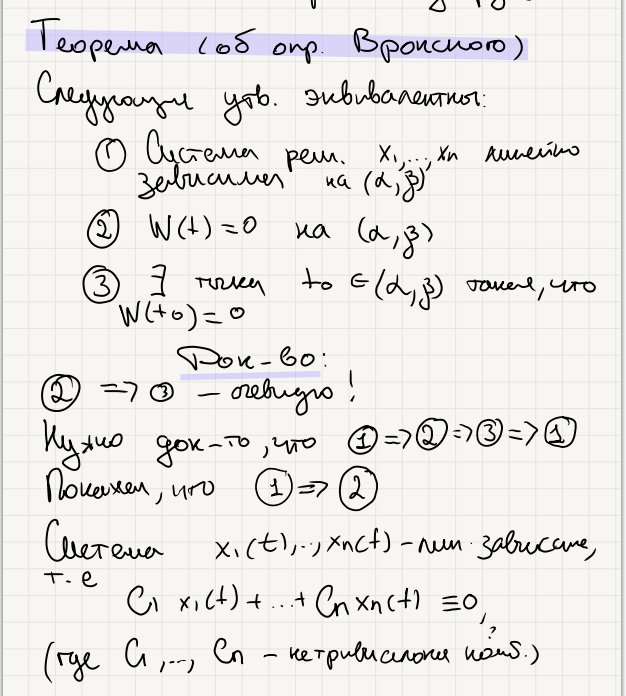 Теорема (об опр. Вронского)
Следующие утв. эквивалентны:
① Система реш. x₁,...,xn линейно
зависима на (α,β)
② W(t)=0 на (α,β)
③ ∃ точка t₀ ∈(α,β) такая, что
W(t₀)=0
Док-во:
② => ③ – очевидно!
Нужно док-ть, что ①=>②=>③=>①
Покажем, что ①=>②
Система x₁(t),..,xn(t) – лин. зависима,
т.е
C₁ x₁(t)+...+Cn xn(t) ≡0,
(где C₁,..., Cn – нетривиальная комб.)